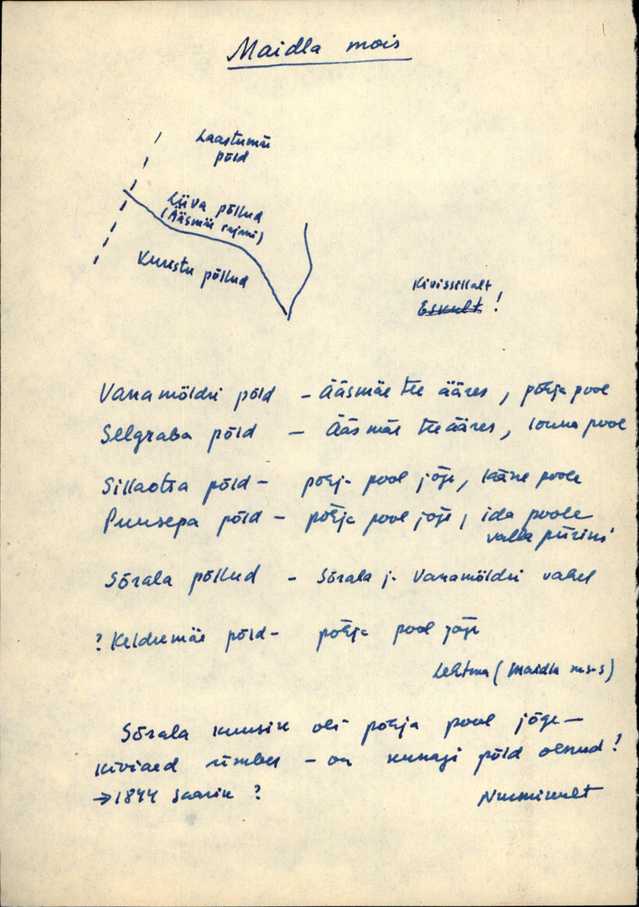 Maidla mois
Laastumäe
põld
Liiva põllud
(Ääsmäe rajani)
Kuustu põllud
Kivissillalt
Eskult !
Vanamöldri põld - Ääsmäe tee ääres, põhja pool
Selgraba põld - Ääsmäe tee ääres, lõuna pool
Sillaotsa põld - põhja pool jõge, lääne poole
Puusepa põld - põhja pool jõge, ida poole
valla piirini
Sõrala põllud - Sõrala ja Vanamöldri vahel
? Keldrimäe põld - põhja pool jõge
Lehtma (Maidla ms-s)
Sõrala kuusik oli põhja pool jõge -
kiviaed ümber - on kunagi põld olnud?
→ 1844 saarik ?
Nurmikult